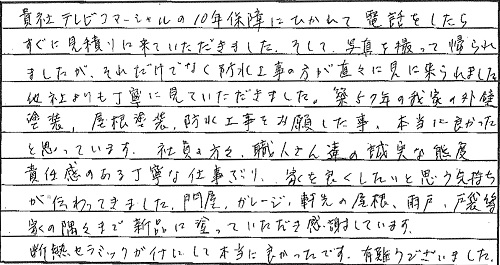 貴社テレビコマーシャルの10年保障にひかれて電話をしたら
すぐに見積りに来ていただきました。そして、写真を撮って帰られ
ましたが、それだけでなく防水工事の方が直々に見に来られました
他社よりも丁寧に見ていただきました。築57年の我家の外壁
塗装、屋根塗装、防水工事をお願した事、本当に良かった
と思っています。社員の方々、職人さん達の誠実な態度
責任感のある丁寧な仕事ぶり、家を良くしたいと思う気持ち
が伝わってきました。門扉、ガレージ、軒先の屋根、雨戸、戸袋等
家の隅々まで新品に塗っていただき感謝しています。
断熱セラミックが付にして本当に良かったです。有難うございました。